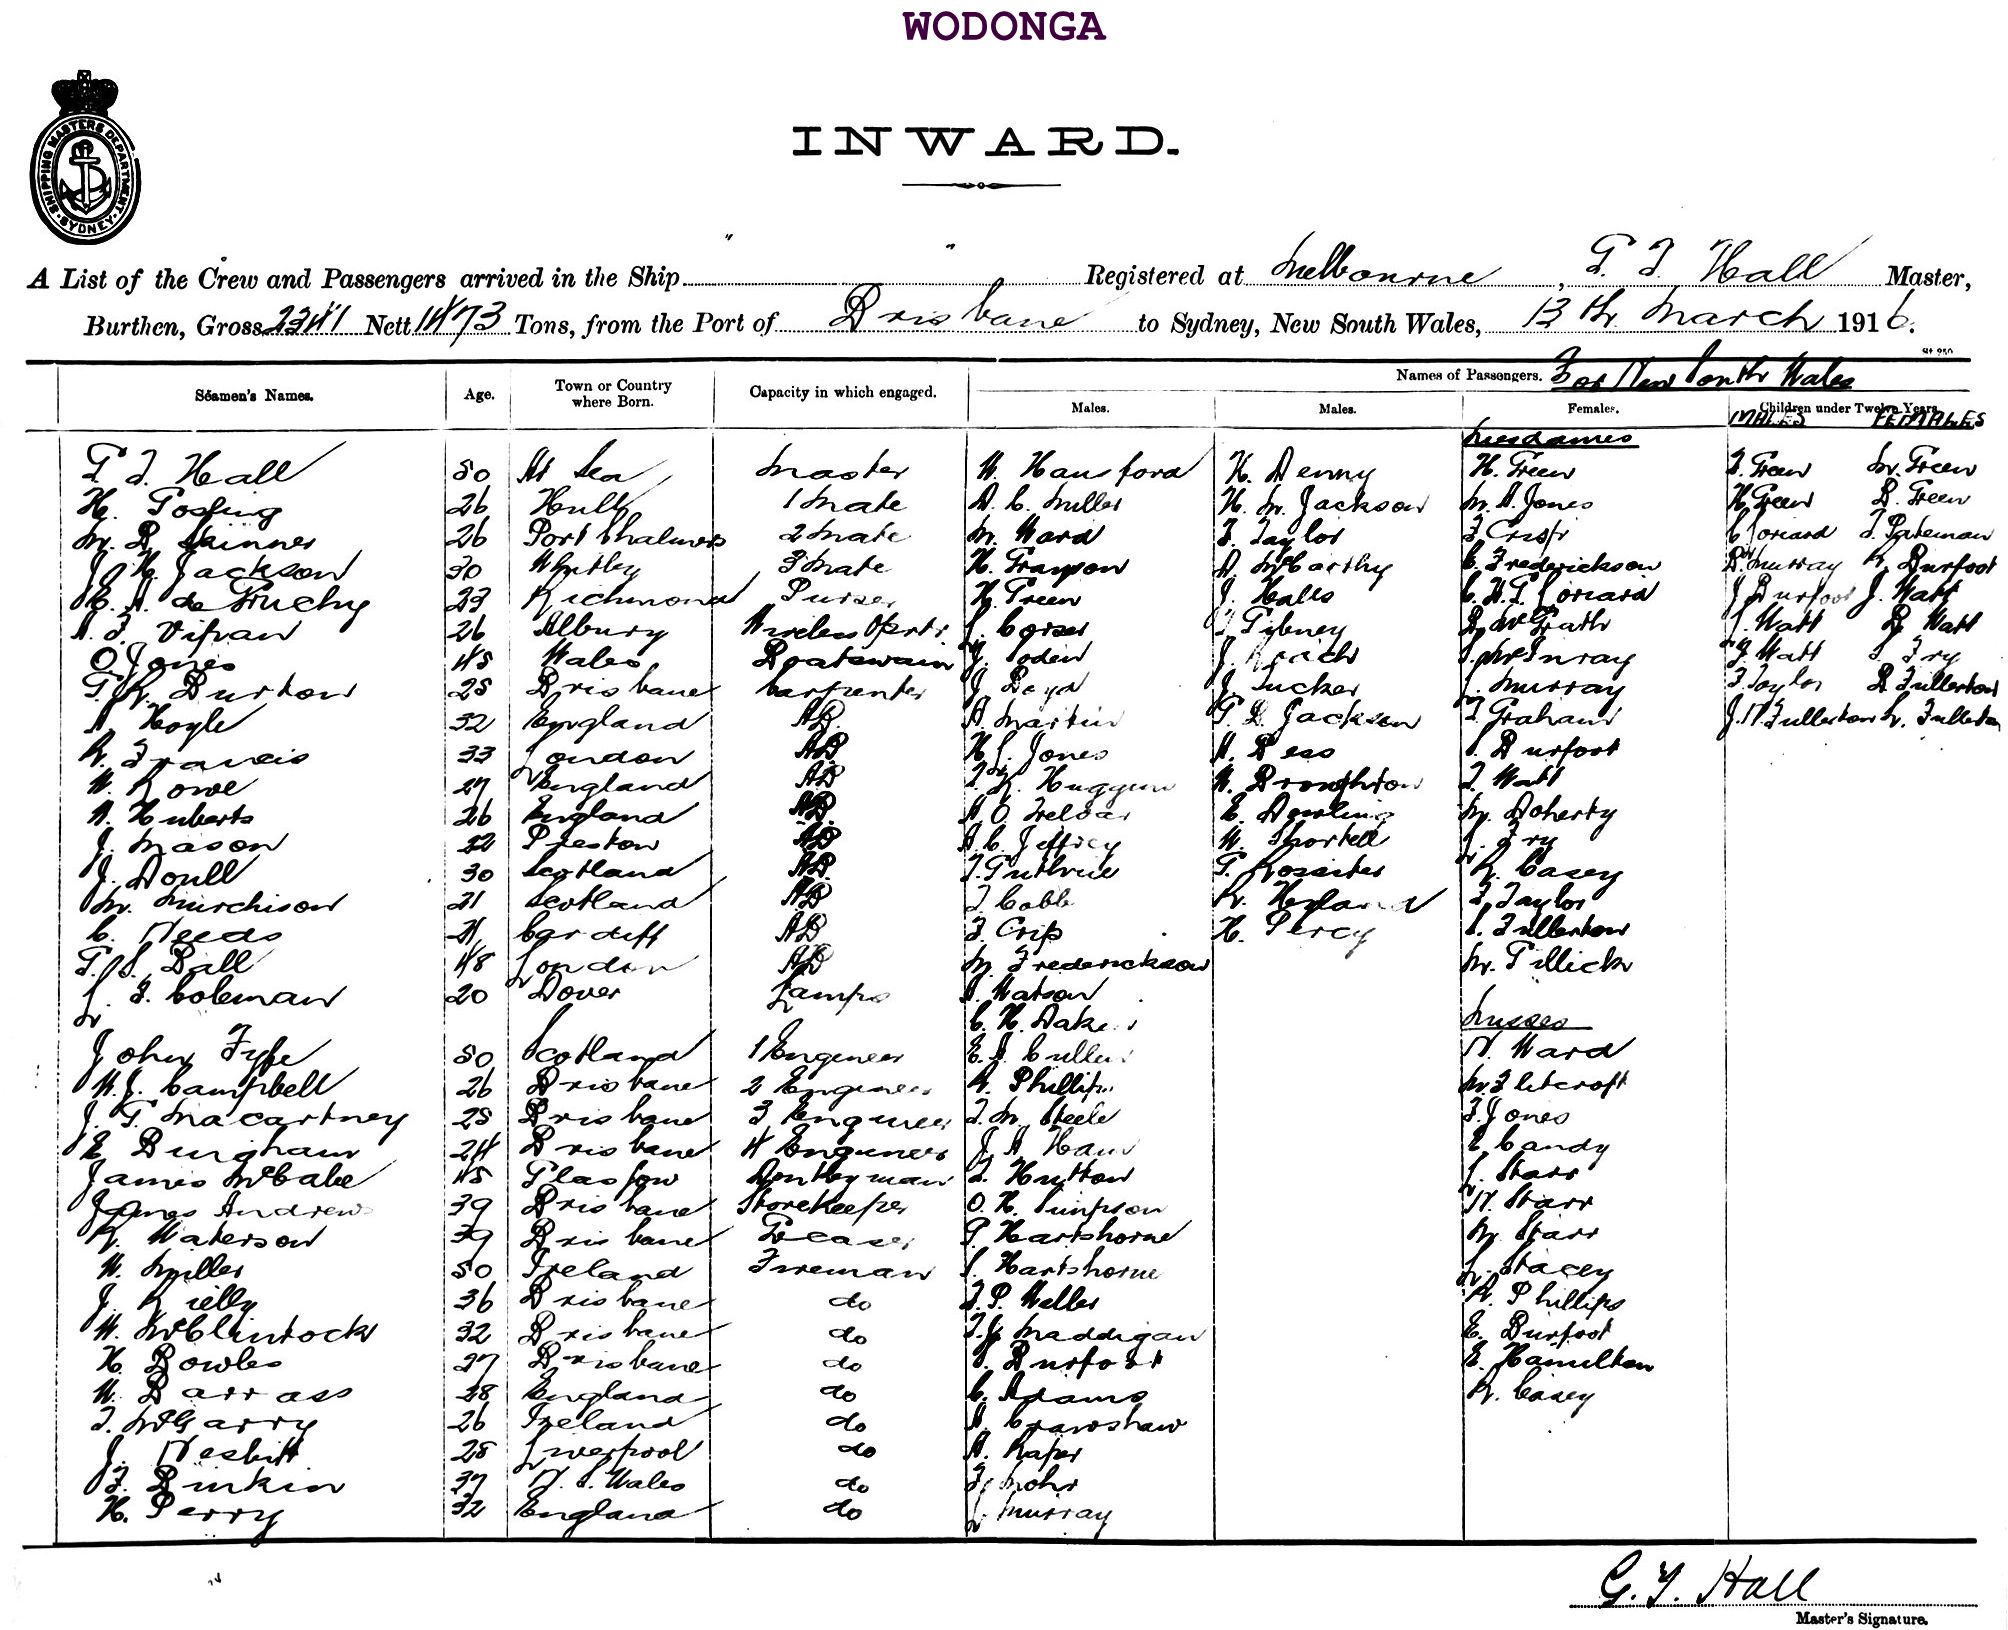 WODONGA
INWARD.
SHIPPING MASTERS DEPARTMENT · SYDNEY ·
A List of the Crew and Passengers arrived in the Ship " " Registered at Melbourne, G. T. Hall Master,
Burthen, Gross 2341 Nett 1473 Tons, from the Port of Brisbane to Sydney, New South Wales, 13th March 1916.
Names of Passengers. For New South Wales
Seamen's Names. Age. Town or Country where Born. Capacity in which engaged. Males. Males. Females. Children under Twelve Years
MALES FEMALES
Mesdames
G. T. Hall 50 At Sea Master W. Hansford H. Denny H. Green T. Green M. Green
H. Gosling 26 Hull 1 Mate A. C. Miller H. M. Jackson M. A. Jones H. Green B. Green
M. B. Skinner 26 Port Chalmers 2 Mate M. Ward F. Taylor F. Crisp C. Soriard F. Pateman
J. H. Jackson 30 Whitby 3 Mate H. Grayson A. McCarthy C. Frederickson B. Murray R. Burfoot
E. A. de Gruchy 23 Richmond Purser H. Green J. Halls C. H. G. Soriard J. Burfoot J. Watt
A. F. Vivian 26 Albury Wireless Opertr. L. Corser T. Gibney B. McGrath J. Watt B. Watt
O. Jones 45 Wales Boatswain J. Loden J. Roach S. McInray J. Watt S. Fry
G. R. Burton 25 Brisbane Carpenter J. Boyd J. Tucker L. Murray F. Taylor B. Fullerton
A. Hoyle 32 England AB A. Martin G. L. Jackson T. Graham J. N. Fullerton M. Fullerton
R. Francis 33 London AB H. L. Jones A. Bess S. Burfoot
W. Rowe 27 England AB T. R. Huggun W. Broughton T. Watt
A. Huberts 26 England AB A. O. Treloar E. Dowling M. Doherty
J. Mason 22 Preston AB A. C. Jeffrey W. Shortell L. Fry
J. Doull 30 Scotland AB T. Guthrie G. Rossiter R. Casey
M. Murchison 21 Scotland AB T. Cobb R. Hyland F. Taylor
C. Needs 21 Cardiff AB F. Crisp H. Percy S. Fullerton
G. S. Ball 48 London AB M. Frederickson M. Gillick
L. F. Coleman 20 Dover Lamps A. Watson
C. H. Baker Misses
John Fyfe 50 Scotland 1 Engineer E. A. Cullen N. Ward
W. J. Campbell 26 Brisbane 2 Engineer R. Phillips M. Flitcroft
J. G. Macartney 25 Brisbane 3 Engineer T. M. Steele F. Jones
E. Bingham 24 Brisbane 4 Engineer J. A. Ham E. Candy
James McCabe 45 Glasgow Donkeyman T. Hutton L. Starr
James Andrews 39 Brisbane Storekeeper O. H. Simpson N. Starr
R. Waterson 39 Brisbane Greaser P. Hartshorne M. Starr
W. Miller 50 Ireland Fireman S. Hartshorne L. Stacey
J. Rielly 36 Brisbane do T. P. Weller R. Phillips
W. McClintock 32 Brisbane do T. J. Maddigan E. Burfoot
H. Bowles 27 Brisbane do S. Burfoot E. Hamilton
W. Barrass 28 England do C. Adams R. Casey
T. McGarry 26 Ireland do A. Crawshaw
J. Nesbitt 28 Liverpool do A. Raper
F. Binkin 37 N. S. Wales do F. Mohr
H. Perry 32 England do L. Murray
G. T. Hall
Master's Signature.